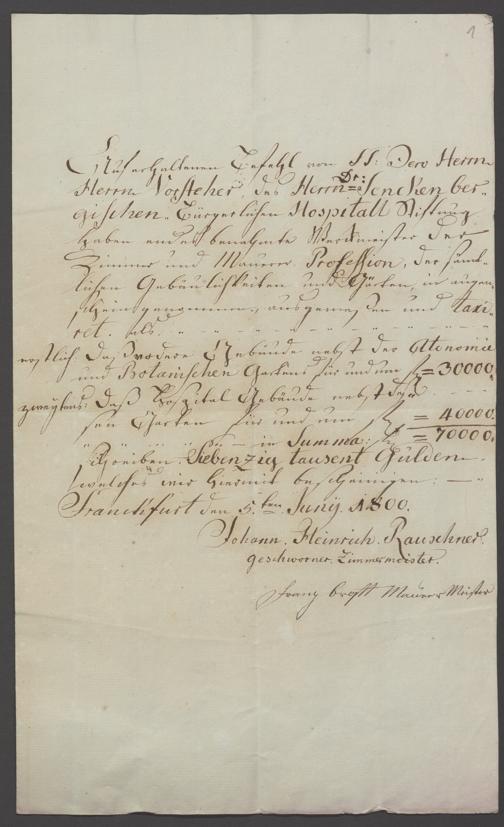 1
Auf erhaltenen Befehl von TT: Dero Herrn
Herrn Vorsteher, des Herrn Dr: Sencken ber-
gischen Bürgerlichen Hospitall Stiftung
haben endes benahmte Werckmeister der
Zimmer und Maurer Profession, der sämt-
lichen Gebäulichkeiten und Gärten, in augen
schein genommen, ausgemessen und taxi-
ret. als
erstlich Daß vodere Gebäude nebst der Attonomie
und Botanischen Gartens für und um f = 30000.
zweytens: Daß Hospital Gebäude nebst
sen Garten für und um f = 40000.
in Summa: f = 70000.
schreiben. Siebenzig tausent Gülden
welches wir hiermit bescheinigen:
Franckfurt den 5.ten Junÿ 1800.
Johann. Heinrich. Rauschner.
geschworner. Zimmermeister.
Franz Maurer Meister